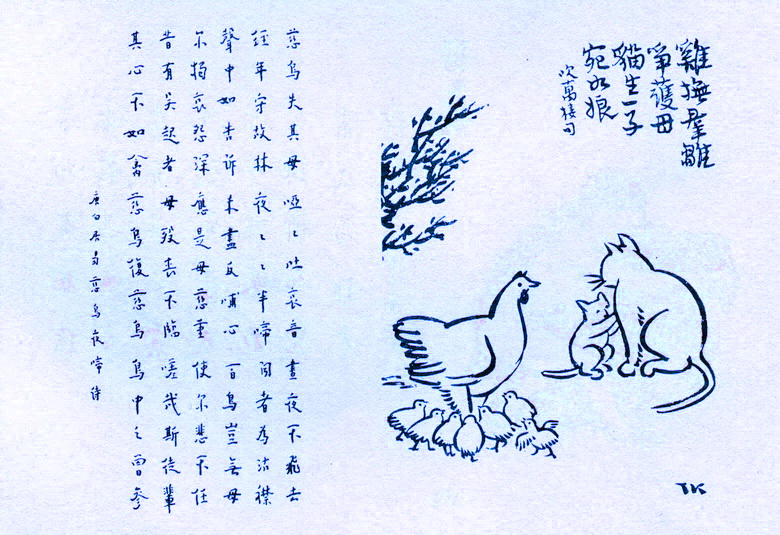 雞撫羣雛
爭護母
貓生一子
宛如娘
吹萬樓句
TK
慈烏失其母 啞〻吐哀音 晝夜不飛去
經年守故林 夜〻〻半啼 聞者為沾襟
聲中如告訴 未盡反哺心 百鳥豈無母
尔獨哀怨深 應是母慈重 使尔悲不任
昔有吳起者 母歿喪不臨 嗟哉斯徒輩
其心不如禽 慈烏復慈烏 鳥中之曾參
唐白居易慈烏夜啼詩